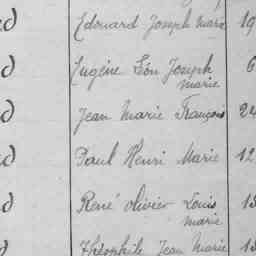 Edouard Joseph Marie 19
Eugène Léon Joseph 6
Marie
Jean Marie François 24
Paul Henri Marie 12
René Olivier Louis
Marie
Théophile Jean Marie